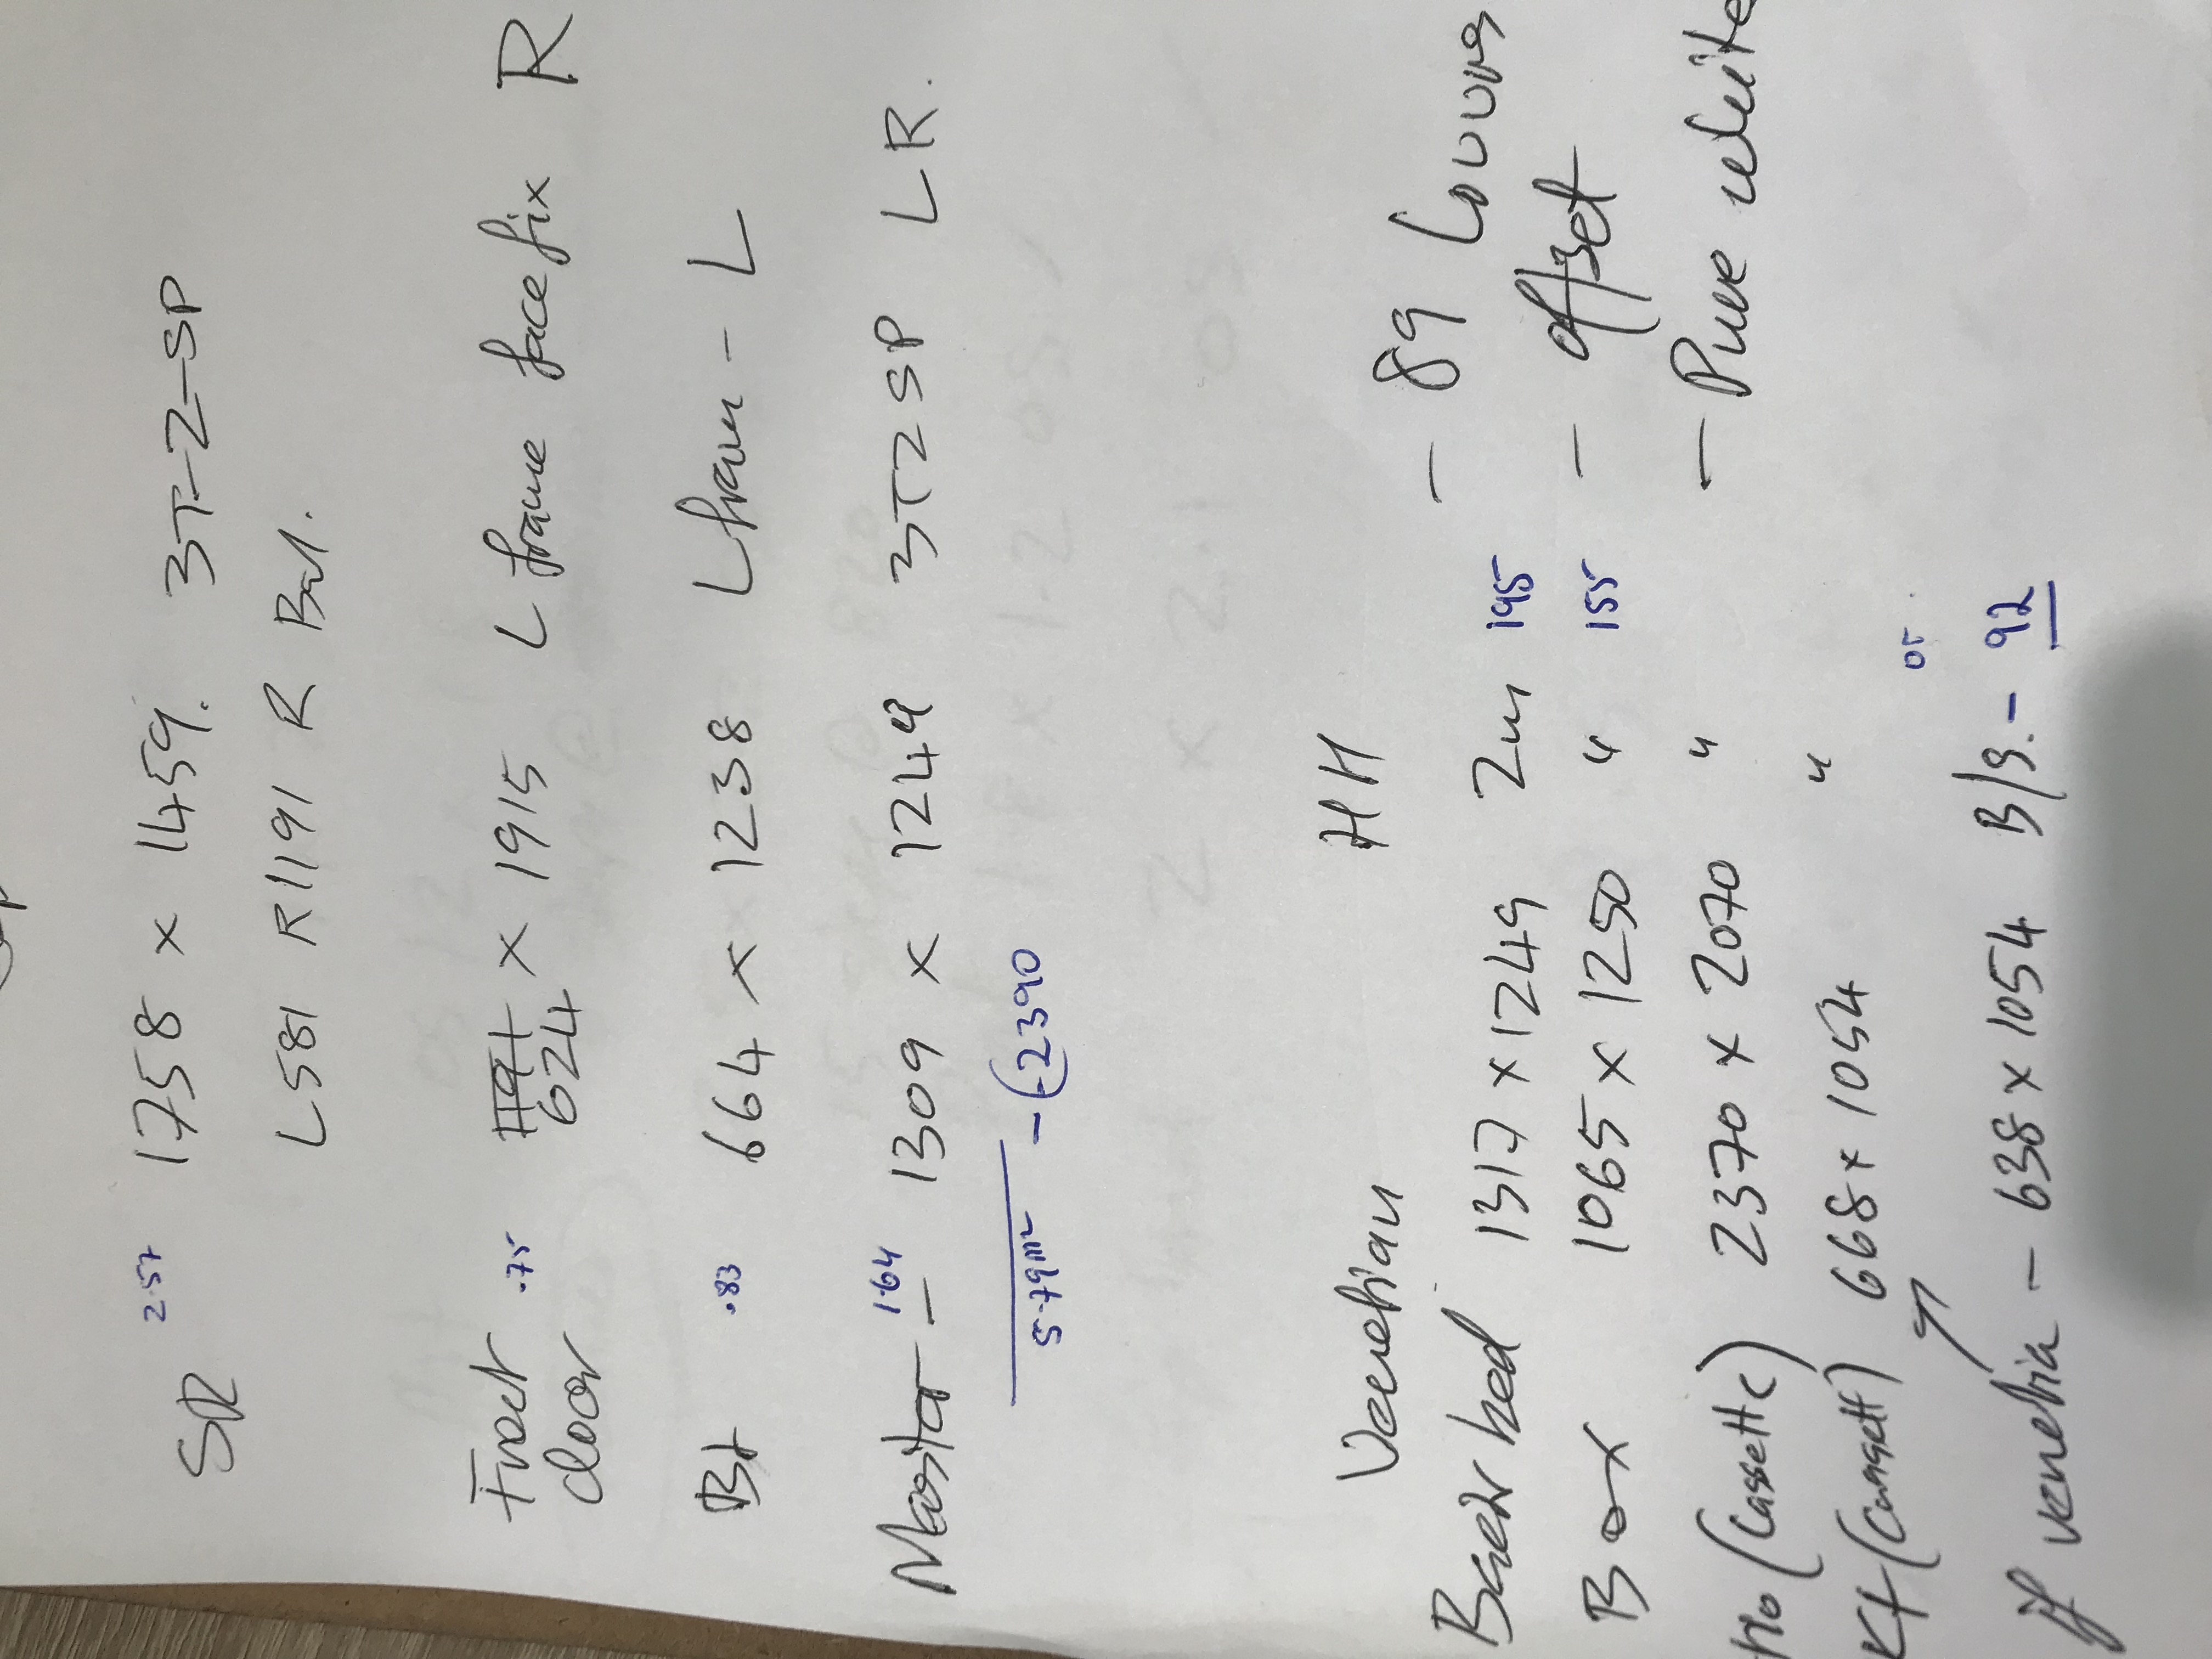 SR 2.57 1758 x 1459. 3T-2-SP
L581 R1191 R Bal.
Front door .75 624 x 1915 L frame face fix R
Bt .83 664 x 1238 L fram - L
Master 1.64 - 1309 x 1249 3T2SP LR.
5.79m² - (2390
Venetian HH
Back bed 1317 x 1249 2m 195 - 89 Louvers
Box 1065 x 1250 " 155 - offset
(Cassette) 2370 x 2070 " - Pure white
Kt (Cassett) 668 x 1054 "
or
if venetia - 638 x 1054 B/S. - 92